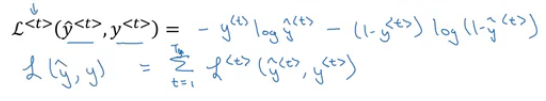 ℒ^{<t>}(ŷ^{<t>}, y^{<t>}) = - y^{<t>} log ŷ^{<t>} - (1-y^{<t>}) log (1-ŷ^{<t>})
ℒ(ŷ, y) = \sum_{t=1}^{T_y} ℒ^{<t>}(ŷ^{<t>}, y^{<t>})